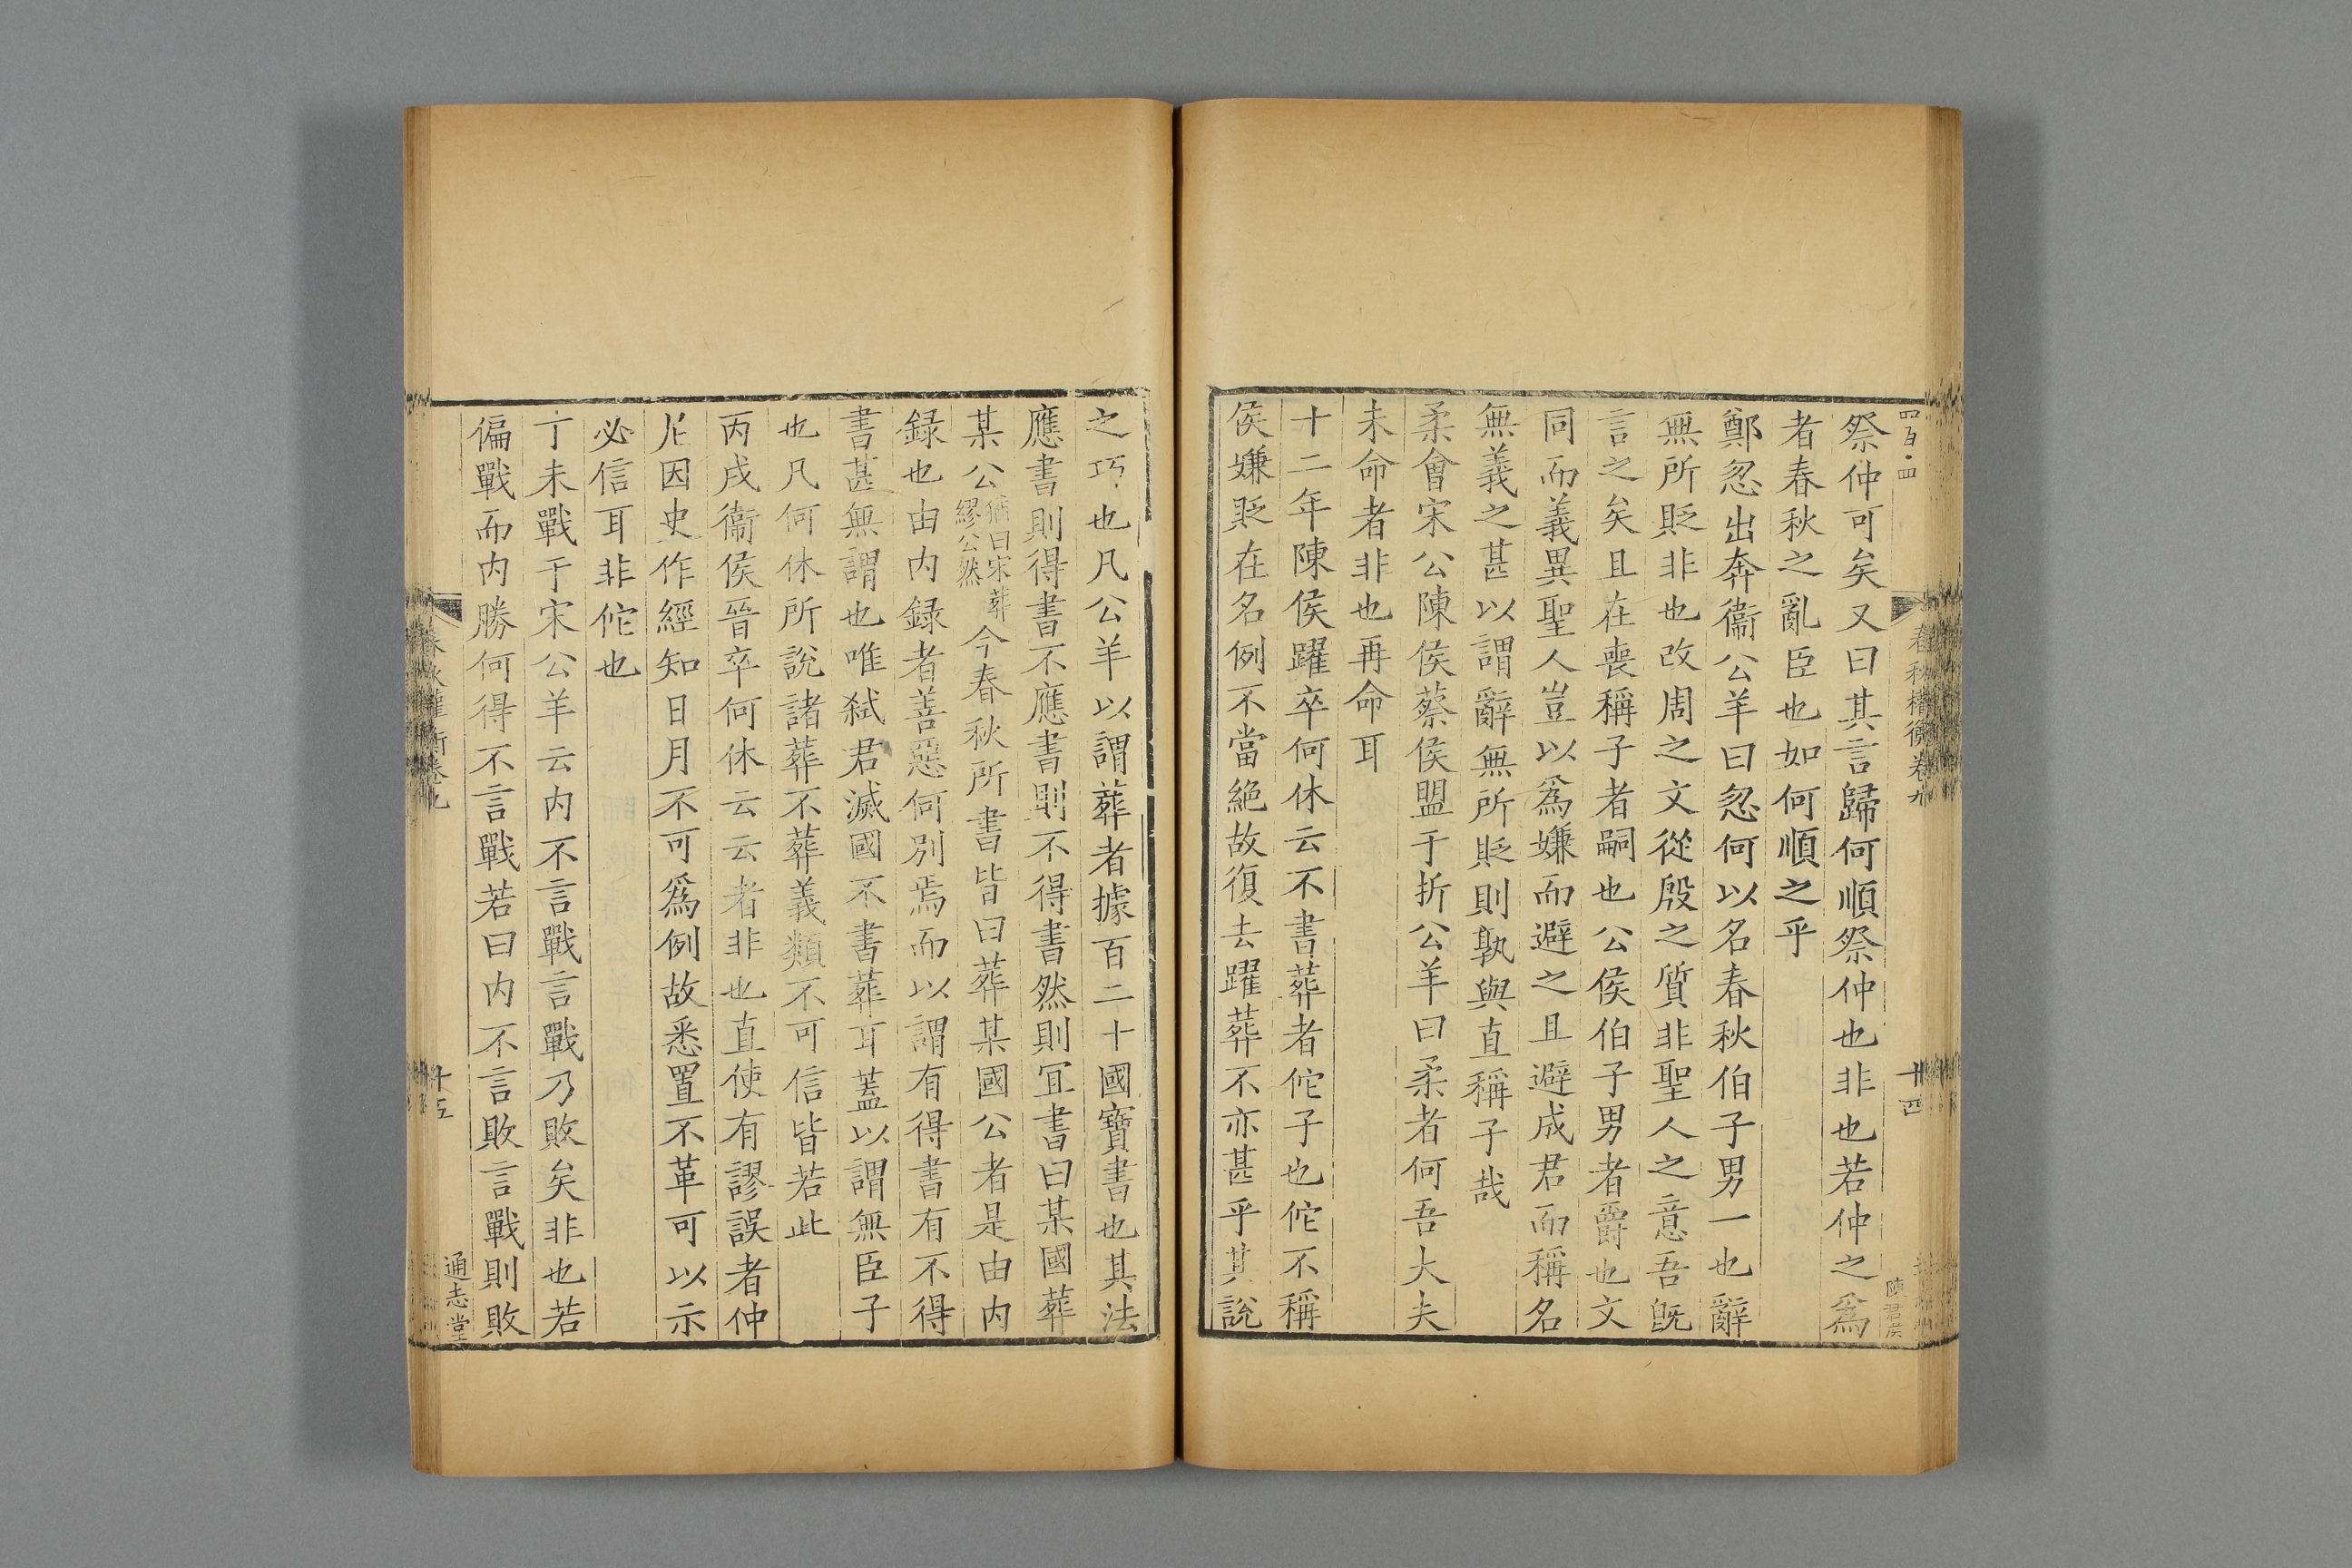 四百·四
春秋權衡卷九
十四
陳君侯
祭仲可矣又曰其言歸何順祭仲也非也若仲之爲
者春秋之亂臣也如何順之乎
鄭忽出奔衞公羊曰忽何以名春秋伯子男一也辭
無所貶非也改周之文從殷之質非聖人之意吾旣
言之矣且在喪稱子者嗣也公侯伯子男者爵也文
同而義異聖人豈以爲嫌而避之且避成君而稱名
無義之甚以謂辭無所貶則孰與直稱子哉
柔會宋公陳侯蔡侯盟于折公羊曰柔者何吾大夫
未命者非也再命耳
十二年陳侯躍卒何休云不書葬者佗子也佗不稱
侯嫌貶在名例不當絶故復去躍葬不亦甚乎其說
之巧也凡公羊以謂葬者據百二十國寶書也其法
應書則得書不應書則不得書然則宜書曰某國葬
某公猶曰宋葬繆公然今春秋所書皆曰葬某國公者是由内
録也由内録者善惡何別焉而以謂有得書有不得
書甚無謂也唯弑君滅國不書葬耳蓋以謂無臣子
也凡何休所說諸葬不葬義類不可信皆若此
丙戌衞侯晉卒何休云云者非也直使有謬誤者仲
尼因史作經知日月不可爲例故悉置不革可以示
必信耳非佗也
丁未戰于宋公羊云内不言戰言戰乃敗矣非也若
偏戰而内勝何得不言戰若曰内不言敗言戰則敗
春秋權衡卷九
十五
通志堂